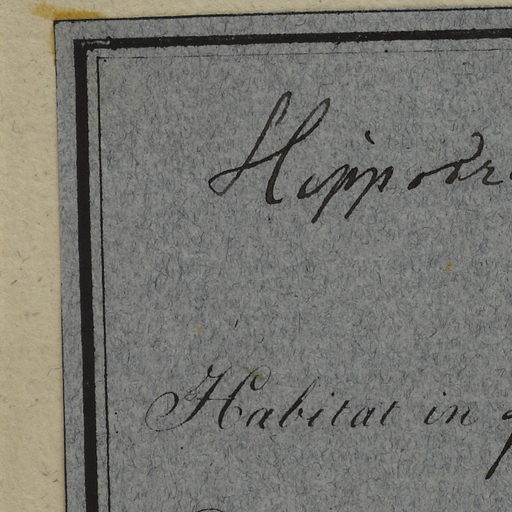 Hippocr
Habitat in